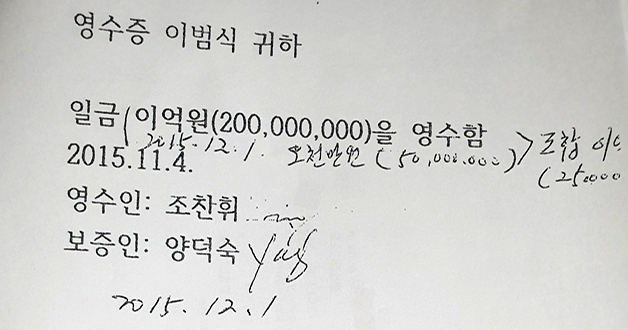 영수증 이범식 귀하
일금(이억원(200,000,000)을 영수함
2015.12.1. 오천만원 (50,000.000) > 포함 이억
2015.11.4.
(25.0000
영수인: 조찬휘
보증인: 양덕숙
2015.12.1